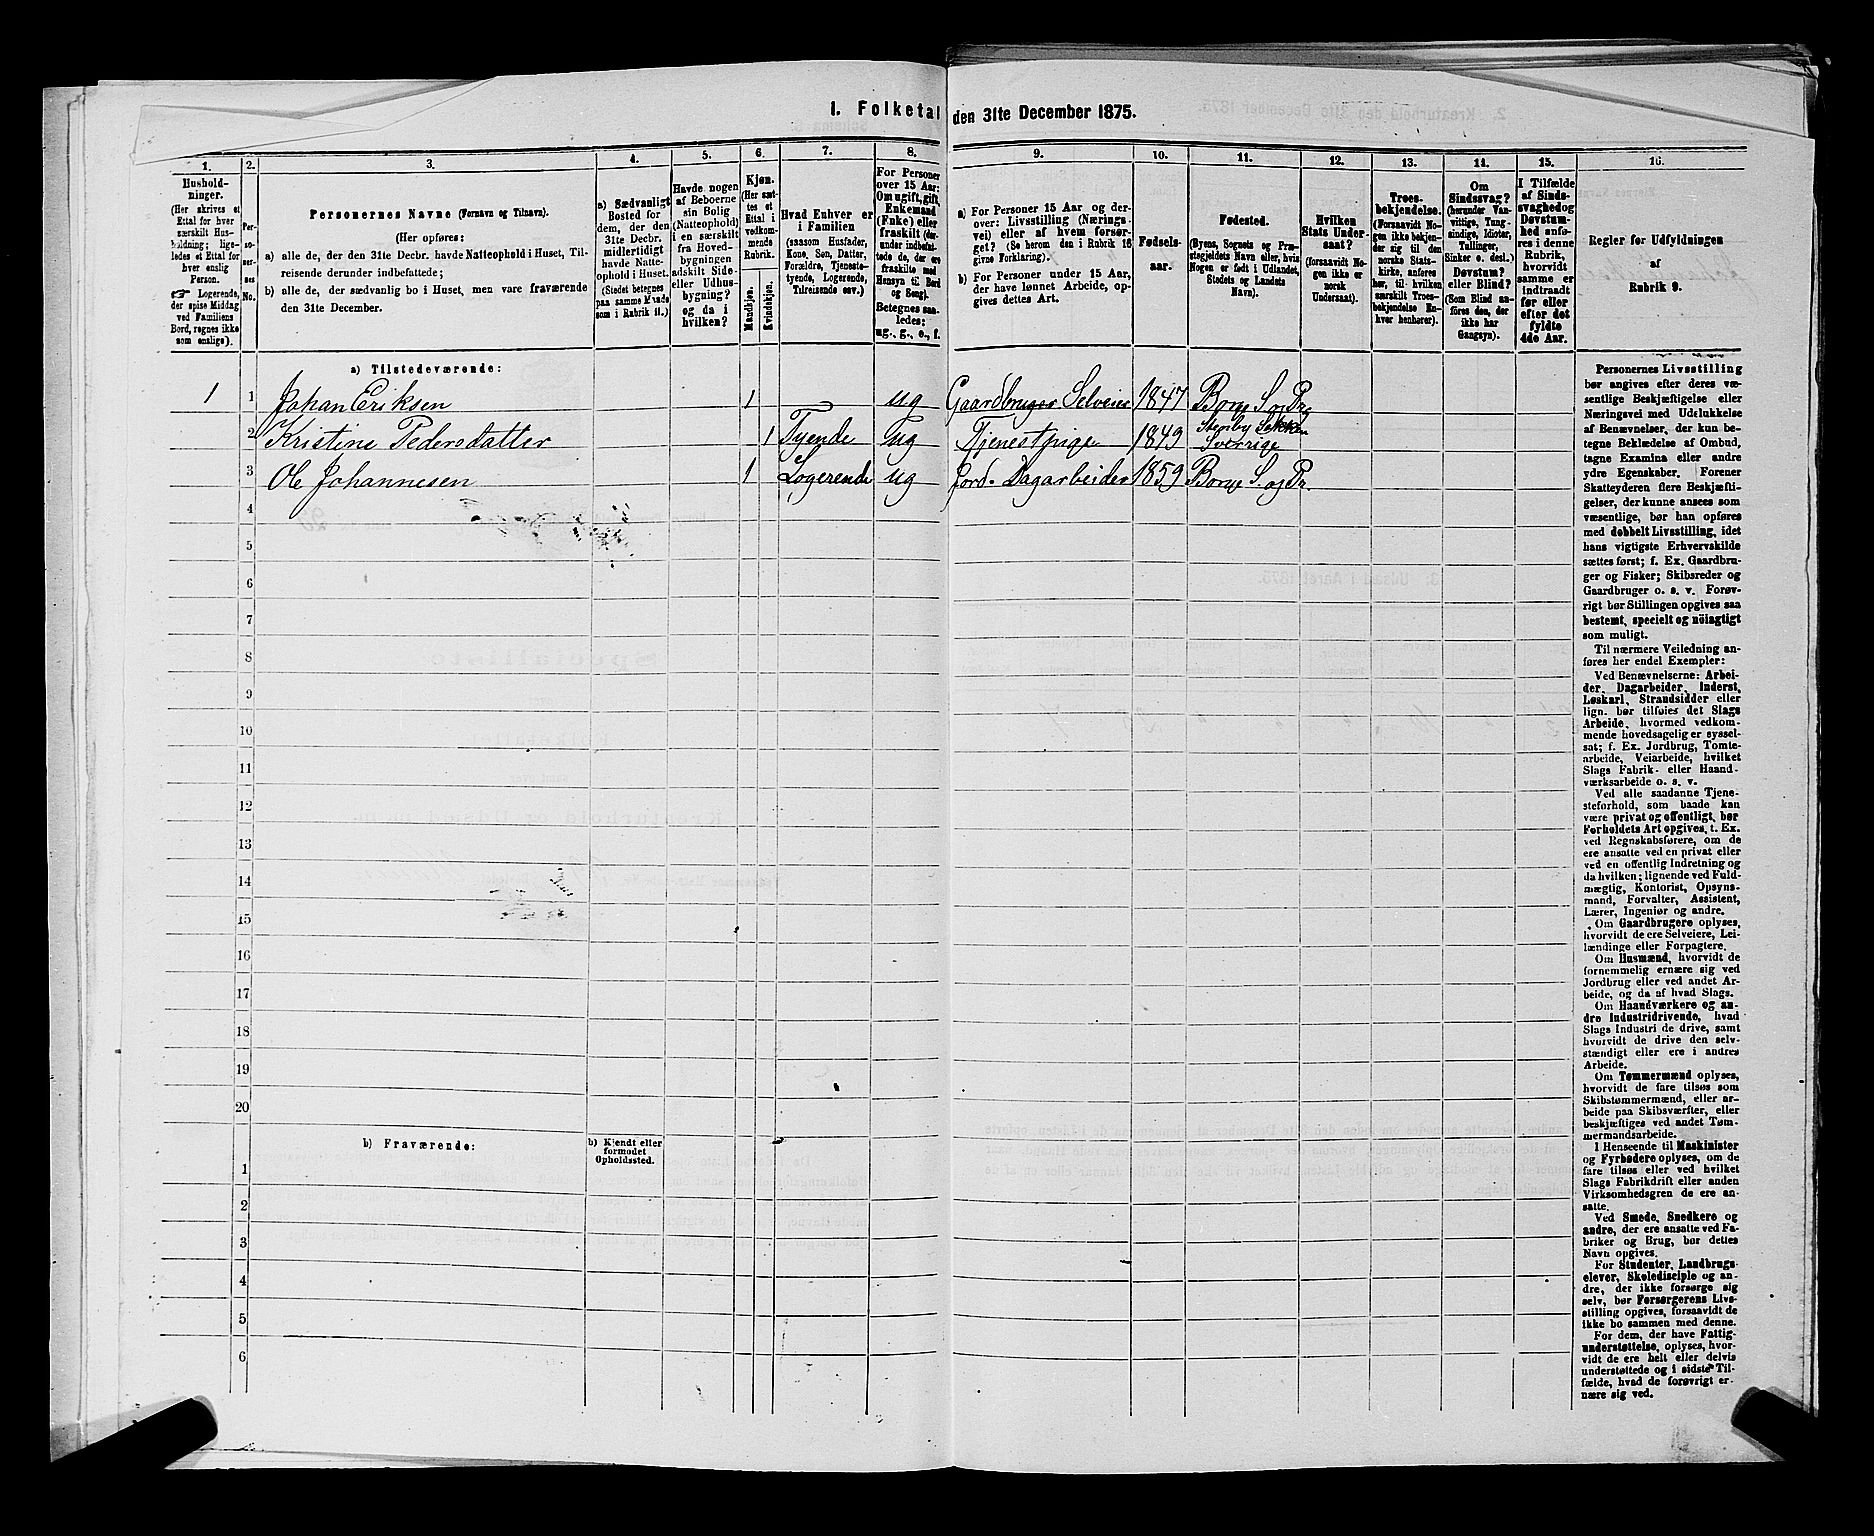 1. Folketal den 31te December 1875.
1.
Hushold-
ninger.
(Her skrives et
Ettal for hver
særskilt Hus-
holdning; lige-
ledes et Ettal for
hver enslig
Person.
☞ Logerende,
der spise Middag
ved Familiens
Bord, regnes ikke
som enslige).
2.
Per-
so-
ner-
nes
No.
3.
Personernes Navne (Fornavn og Tilnavn).
(Her opføres:
a) alle de, der den 31te Decbr. havde Natteophold i Huset, Til-
reisende derunder indbefattede;
b) alle de, der sædvanlig bo i Huset, men vare fraværende
den 31te December.
4.
a) Sædvanligt
Bosted for
dem, der den
31te Decbr.
midlertidigt
havde Natte-
ophold i Huset.
(Stedet betegnes
paa samme Maade
som i Rubrik 11.)
5.
Havde nogen
af Beboerne
sin Bolig
(Natteophold)
i en særskilt
fra Hoved-
bygningen
adskilt Side-
eller Udhus-
bygning?
og da i
hvilken?
6.
Kjøn.
(Her sæt-
tes et
Ettal i
vedkom-
mende
Rubrik.
Mandkjøn.
Kvindekjøn.
7.
Hvad Enhver er
i Familien
(saasom Husfader,
Kone, Søn, Datter,
Forældre, Tjeneste-
tyende, Logerende,
Tilreisende osv.)
8.
For Personer
over 15 Aar:
Om ugift, gift,
Enkemand
(Enke) eller
fraskilt (der-
under indbefat-
tede de, der ere
fraskilte med
Hensyn til Bord
og Seng).
Betegnes saa-
ledes:
ug., g., e., f.
9.
a) For Personer 15 Aar og der-
over: Livsstilling (Nærings-
vei) eller af hvem forsør-
get? (Se herom den i Rubrik 16
givne Forklaring).
b) For Personer under 15 Aar,
der have lønnet Arbeide, op-
gives dettes Art.
10.
Fødsels-
aar.
11.
Fødested.
(Byens, Sognets og Præ-
stegjeldets Navn eller, hvis
Nogen er født i Udlandet,
Stedets og Landets
Navn).
12.
Hvilken
Stats Under-
saat?
(forsaavidt No-
gen ikke er
norsk
Undersaat).
13.
Troes-
bekjendelse.
(Forsaavidt No-
gen ikke bekjen-
der sig til den
norske Stats-
kirke, anføres
her, til hvilken
særskilt Troes-
bekjendelse En-
hver henhører).
14.
Om
Sindssvag?
(herunder Van-
vittige, Tung-
sindige, Idioter,
Tullinger,
Sinker o. desl.)
Døvstum?
eller Blind?
(Som Blind an-
føres den, der
ikke har
Gangsyn).
15.
I Tilfælde
af Sinds-
svaghed og
Døvstum-
hed anfø-
res i denne
Rubrik,
hvorvidt
samme er
indtraadt
før eller
efter det
fyldte
4de Aar.
16.
Regler for Udfyldningen
af
Rubrik 9.
a) Tilstedeværende:
1 1 Johan Eriksen 1 ug Gaardbruger Selveier 1847 Borge S. og Prg
2 Kristine Pedersdatter 1 Tyende ug Tjenestpige 1849 Sverrige
3 Ole Johannesen 1 Logerende ug Jord. Dagarbeider 1859 Borge S. og Pr.
4
5
6
7
8
9
10
11
12
13
14
15
16
17
18
19
20
b) Fraværende:
b) Kjendt eller
formodet
Opholdssted.
1
2
3
4
5
6
Personernes Livsstilling
bør angives efter deres væ-
sentlige Beskjæftigelse eller
Næringsvei med Udelukkelse
af Benævnelser, der kun be-
tegne Beklædelse af Ombud,
tagne Examina eller andre
ydre Egenskaber. Forener
Skatteyderen flere Beskjæfti-
gelser, der kunne ansees som
væsentlige, bør han opføres
med dobbelt Livsstilling, idet
hans vigtigste Erhvervskilde
sættes først; f. Ex. Gaardbru-
ger og Fisker; Skibsreder og
Gaardbruger o. s. v. Forøv-
rigt bør Stillingen opgives saa
bestemt, specielt og nöiagtigt
som muligt.
Til nærmere Veiledning an-
føres her endel Exempler:
Ved Benævnelserne: Arbei-
der, Dagarbeider, Inderst,
Løskarl, Strandsidder eller
lign. bør tilføies det Slags
Arbeide, hvormed vedkom-
mende hovedsagelig er syssel-
sat; f. Ex. Jordbrug, Tomte-
arbeide, Veiarbeide, hvilket
Slags Fabrik- eller Haand-
værksarbeide o. s. v.
Ved alle saadanne Tjene-
steforhold, som baade kan
være privat og offentligt, bør
Forholdets Art opgives, t. Ex.
ved Regnskabsførere, om de
ere ansatte ved en privat eller
ved en offentlig Indretning og
da hvilken; lignende ved Fuld-
mægtig, Kontorist, Opsyns-
mand, Forvalter, Assistent,
Lærer, Ingeniør og andre.
Om Gaardbrugere oplyses,
hvorvidt de ere Selveiere, Lei-
lændinge eller Forpagtere.
Om Husmænd, hvorvidt de
fornemmelig ernære sig ved
Jordbrug eller ved andet Ar-
beide, og da af hvad Slags.
Om Haandværkere og an-
dre Industridrivende, hvad
Slags Industri de drive, samt
hvorvidt de drive den selv-
stændigt eller ere i andres
Arbeide.
Om Tømmermænd oplyses,
hvorvidt de fare tilsøs som
Skibstømmermænd, eller ar-
beide paa Skibsværfter, eller
beskjæftiges ved andet Tøm-
mermandsarbeide.
I Henseende til Maskinister
og Fyrbødere oplyses, om de
fare tilsøs eller ved hvilket
Slags Fabrikdrift eller anden
Virksomhedsgren de ere an-
satte.
Ved Smede, Snedkere og
andre, der ere ansatte ved Fa-
briker og Brug, bør dettes
Navn opgives.
For Studenter, Landbrugs-
elever, Skoledisciple og an-
dre, der ikke forsørge sig
selv, bør Forsørgerens Livs-
stilling opgives, forsaavidt de
ikke bo sammen med denne.
For dem, der have Fattig-
understøttelse, oplyses, hvor-
vidt de ere helt eller delvis
understøttede og i sidste Til-
fælde, hvad de forøvrigt er-
nære sig ved.